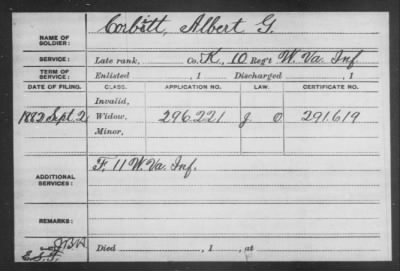 NAME OF SOLDIER: Corbitt, Albert G.
SERVICE: Late rank, Co. K, 10 Reg't W. Va. Inf.
TERM OF SERVICE: Enlisted , 1 Discharged , 1
DATE OF FILING. CLASS. APPLICATION NO. LAW. CERTIFICATE NO.
Invalid,
1882 Sept. 2 Widow, 296.221 G O 291.619
Minor,
ADDITIONAL SERVICES: F. 11 W. Va. Inf.
REMARKS:
Died , 1 , at